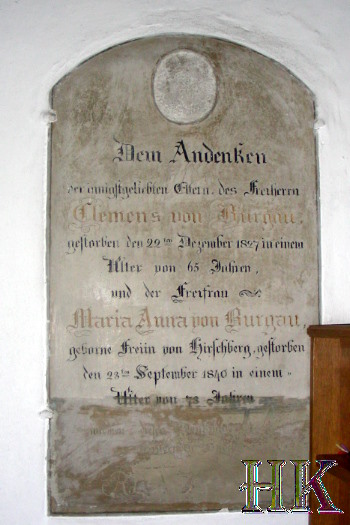 Dem Andenken
der innigstgeliebten Eltern, des Freiherrn
Clemens von Burgau,
gestorben den 22ten Dezember 1827 in einem
Alter von 65 Jahren,
und der Freifrau
Maria Anna von Burgau,
geborne Freiin von Hirschberg, gestorben
den 23ten September 1840 in einem
Alter von 78 Jahren
HK